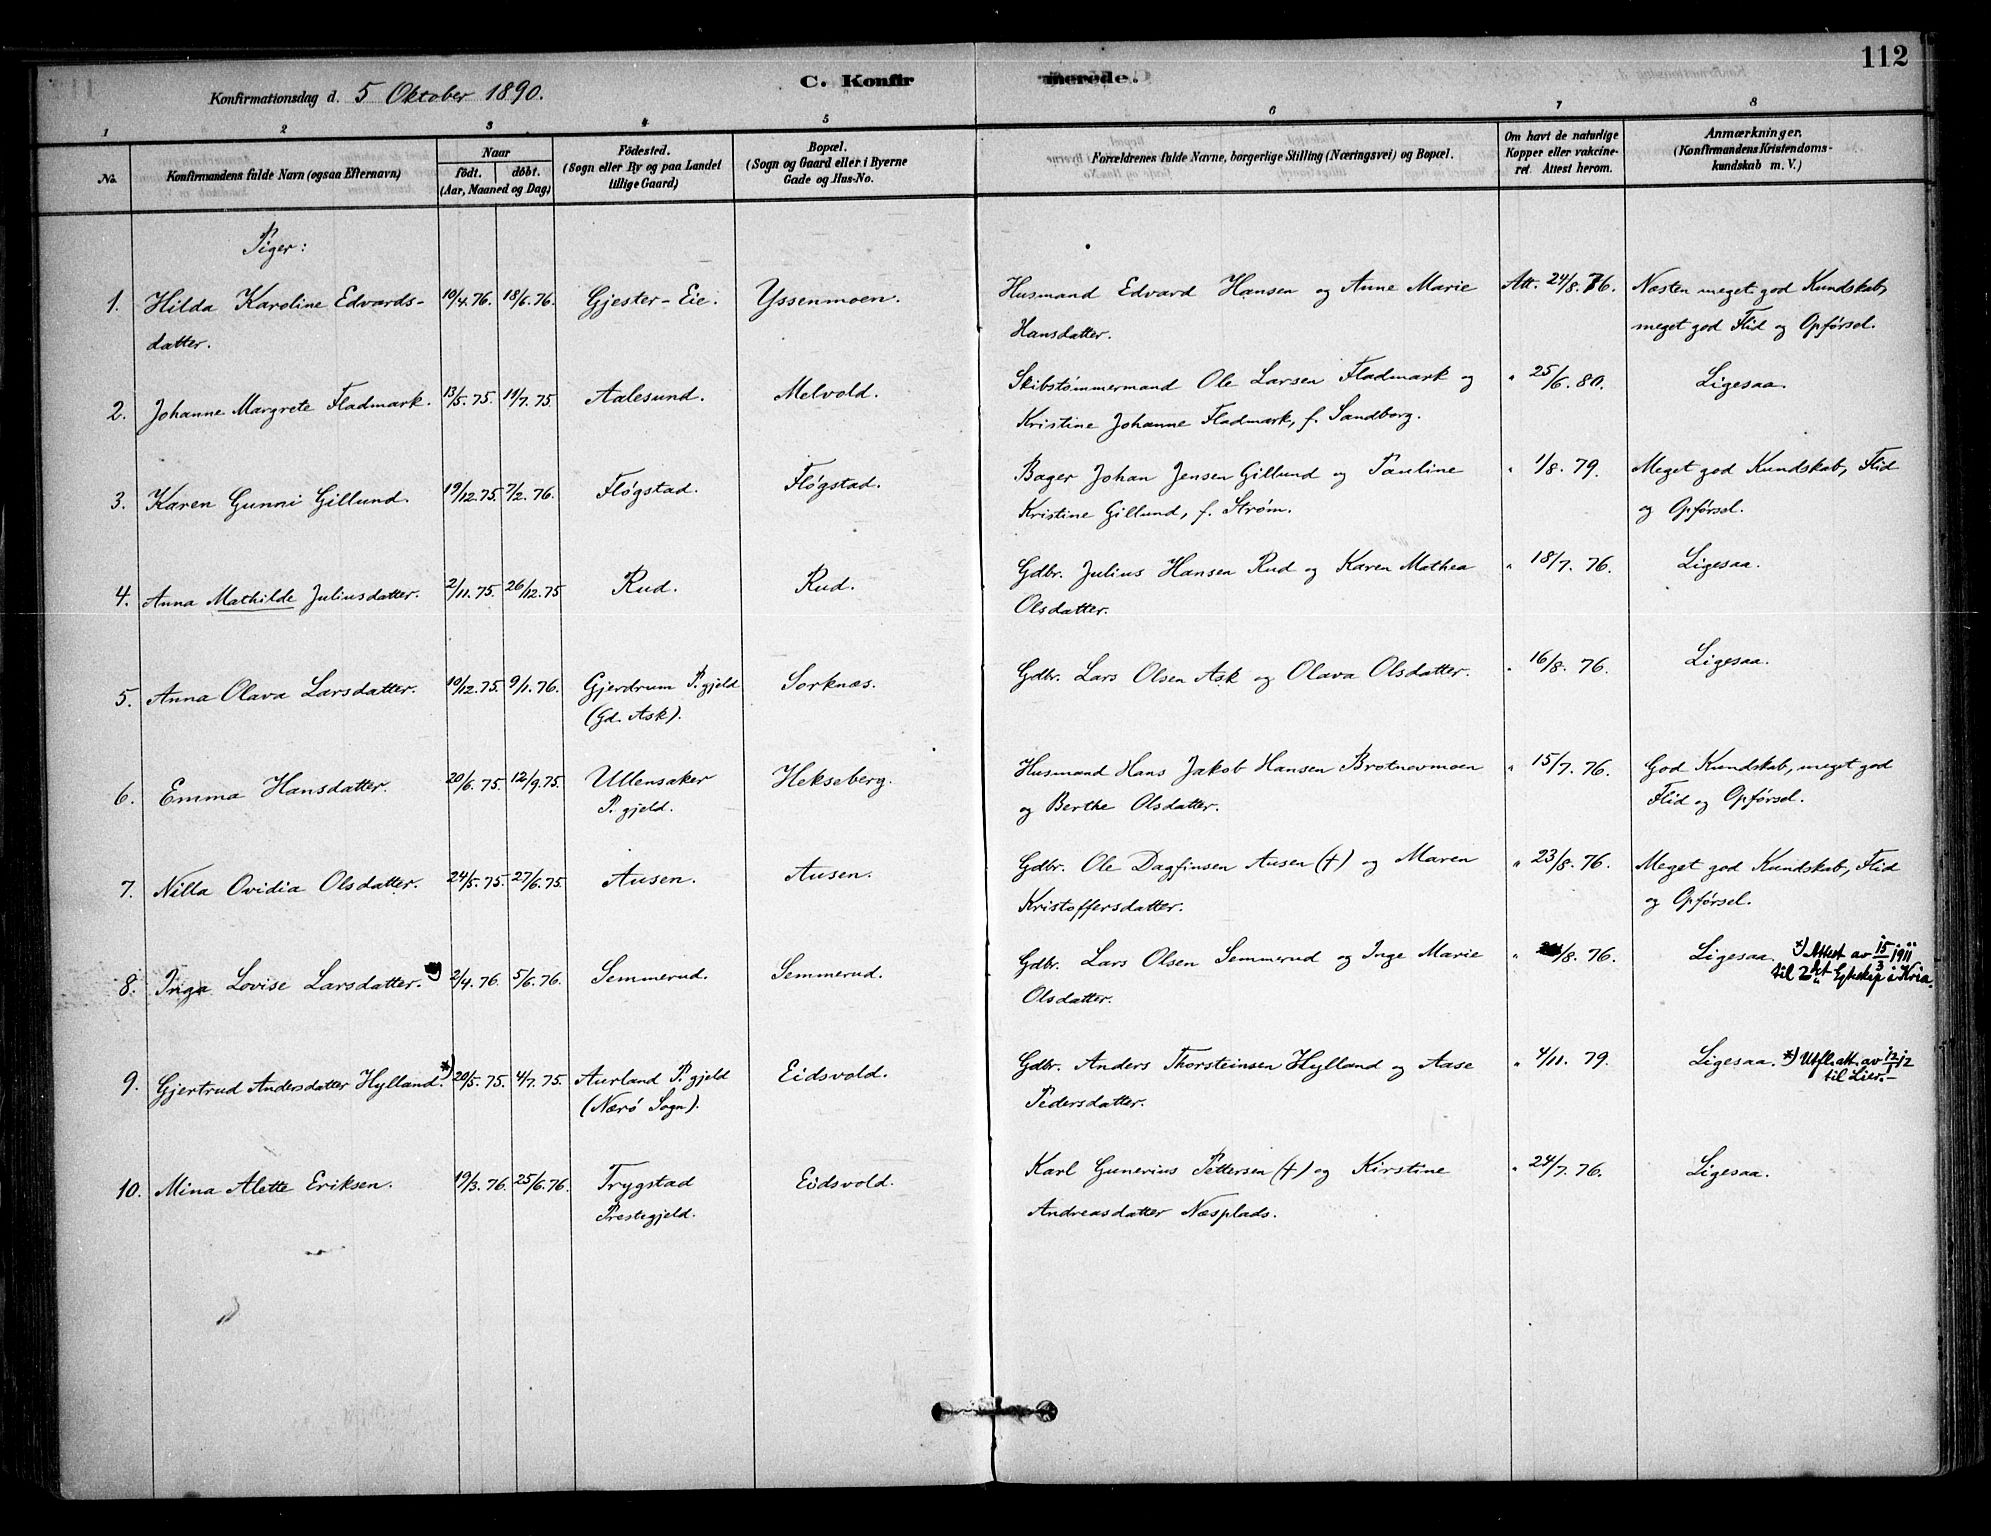 112
C. Konfirmerede.
Konfirmationsdag d. 5 Oktober 1890.
1 2 3 4 5 6 7 8
No. Konfirmandens fulde Navn (ogsaa Efternavn)
Naar
födt. döbt.
(Aar, Maaned og Dag)
Födested.
(Sogn eller By og paa Landet
tillige Gaard)
Bopæl.
(Sogn og Gaard eller i Byerne
Gade og Hus-No.
Forældrenes fulde Navne, borgerlige Stilling (Næringsvei) og Bopæl.
Om havt de naturlige
Kopper eller vakcine-
ret Attest herom.
Anmærkninger.
(Konfirmandens Kristendoms-
kundskab m. V.)
Piger:
1. Hilda Karoline Edvards- 19/4.76. 18/6.76. Gjester-Eie. Yssenmoen. Husmand Edvard Hansen og Anne Marie Att. 24/8.76. Næsten meget god Kundskab,
datter. Hansdatter. meget god Flid og Opførsel.
2. Johanne Margrete Fladmark. 13/5.75. 19/7.75 Aalesund. Melvold. Skibstømmermand Ole Larsen Fladmark og " 25/6.80. Ligesaa.
Kristine Johanne Fladmark, f. Sandborg.
3. Karen Gunni Gillund. 19/12.75. 7/2.76. Fløgstad. Fløgstad. Bager Johan Jensen Gillund og Pauline " 1/8.79. Meget god Kundskab, Flid
Kristine Gillund, f. Strøm. og Opførsel.
4. Anna Mathilde Juliusdatter. 2/11.75. 26/12.75 Rud. Rud. Gdbr. Julius Hansen Rud og Karen Mathea " 18/7.76. Ligesaa.
Olsdatter.
5. Anna Olava Larsdatter. 19/12.75. 9/1.76. Gjerdrum P.gjeld Sorknæs. Gdbr. Lars Olsen Ask og Olava Olsdatter. " 16/8.76. Ligesaa.
(Gd. Ask).
6. Emma Hansdatter. 20/6.75. 12/9.75. Ullensaker Hekseberg. Husmand Hans Jakob Hansen Brotnevmoen " 15/7.76. God Kundskab, meget god
P. gjeld. og Berthe Olsdatter. Flid og Opførsel.
7. Nilla Ovidia Olsdatter. 24/5.75. 27/6.75. Ausen. Ausen. Gdbr. Ole Dagfinsen Ausen (†) og Maren " 23/8.76. Meget god Kundskab, Flid
Kristoffersdatter. og Opførsel.
8. Inga Lovise Larsdatter. 2/4.76. 5/6.76. Semmerud. Semmerud. Gdbr. Lars Olsen Semmerud og Inge Marie " /8.76. Ligesaa. *) Attest av 15/3 1911
Olsdatter. til 2det Egteskap i Kria.
9. Gjertrud Andersdatter Hylland.*) 20/5.75. 4/7.75. Aurland P.gjeld Eidsvold. Gdbr. Anders Thorsteinsen Hylland og Aase " 4/11.79. Ligesaa. *) Utfl.att. av 12/1 12
(Nærö Sogn). Pedersdatter. til Lier.-
10. Mina Alette Eriksen. 19/3.76. 25/6.76. Trygstad Eidsvold. Karl Gunerius Pettersen (†) og Kirstine " 24/7.76. Ligesaa.
Prestegjeld. Andreasdatter Næsplads.